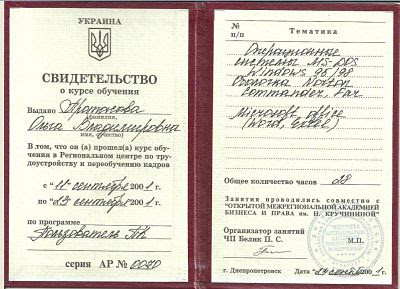 УКРАИНА
СВИДЕТЕЛЬСТВО
о курсе обучения
Выдано
(фамилия,
Ольга Владимировна
имя, отчество)
В том, что он (а) прошел(а) курс обу-
чения в Региональном центре по тру-
доустройству и переобучению кадров
с "11" сентября 2001 г.
по "23" сентября 2001 г.
по программе
Пользователь ПК
серия АР № 0040
№
п/п
Тематика
Операционные
системы MS-DOS
Windows 95/98
Оболочка Norton
Commander, Far
Microsoft office
(Word, Excel)
Общее количество часов
Занятия проводились совместно с
"ОТКРЫТОЙ МЕЖРЕГИОНАЛЬНОЙ АКАДЕМИЕЙ
БИЗНЕСА И ПРАВА им. Н. КРУЧИНИНОЙ"
Организатор занятий
ЧП Белик П. С.
М.П.
г. Днепропетровск
Дата "23" сентя 2001 г.